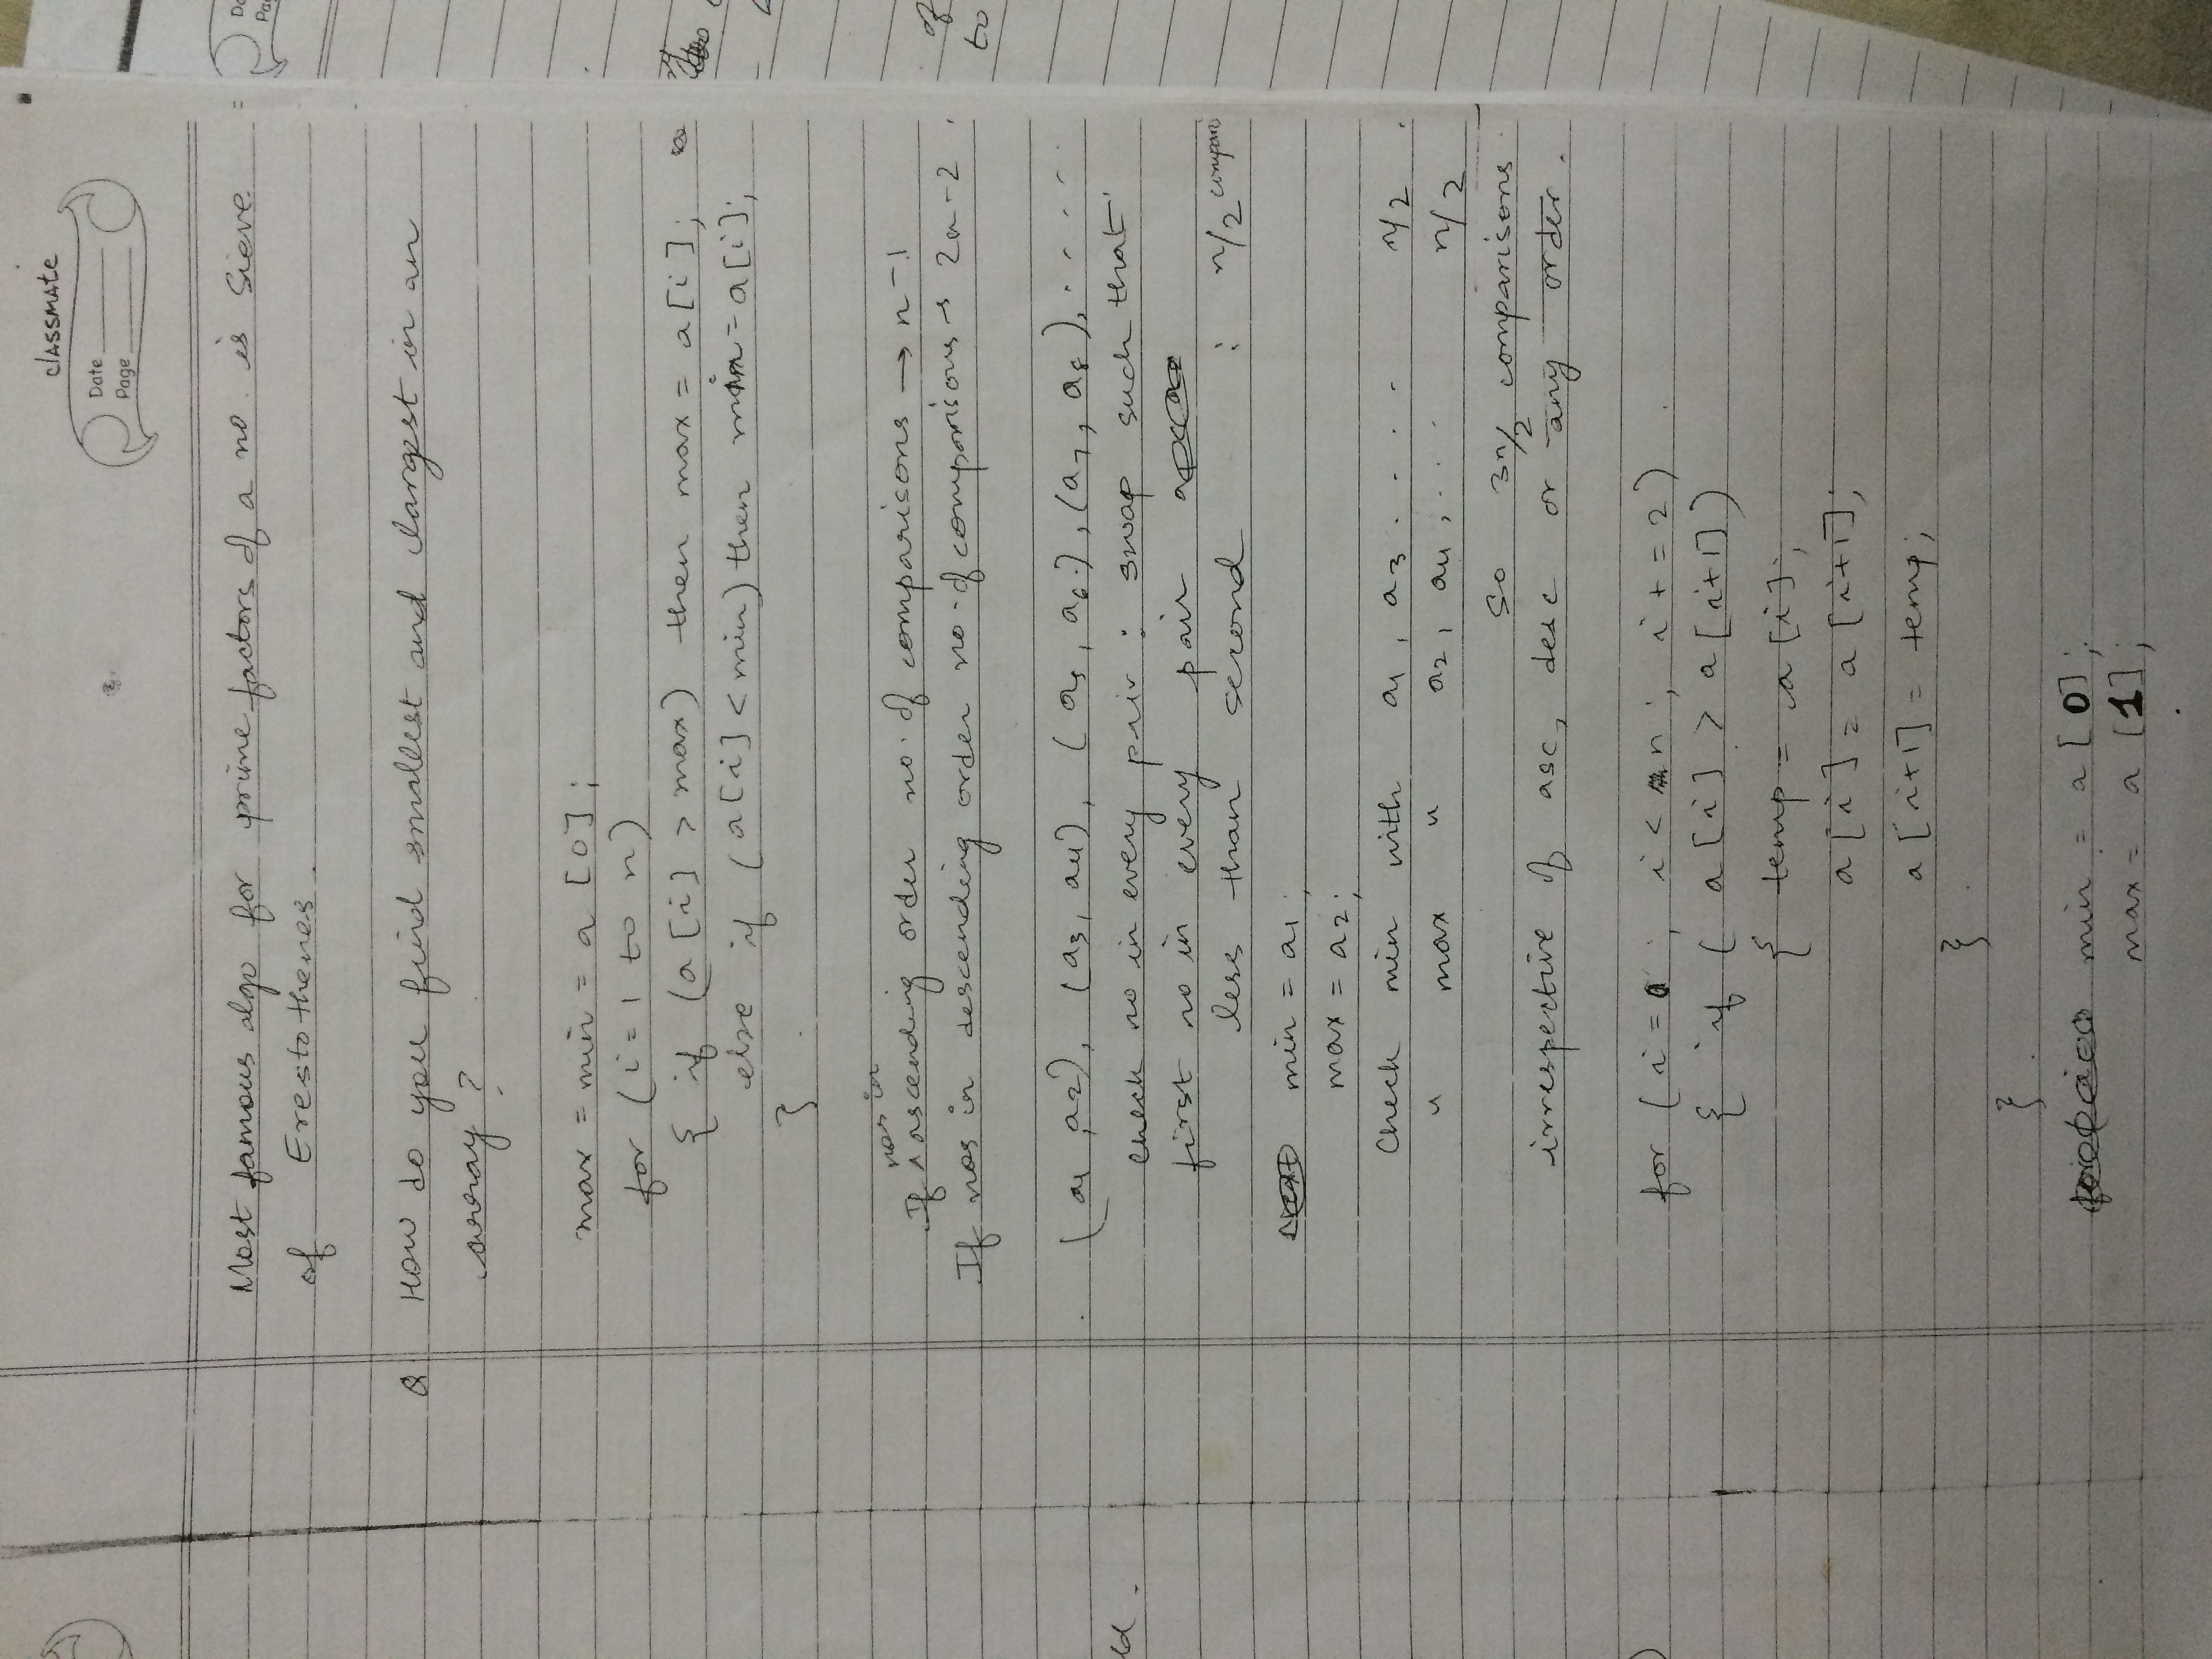 classmate
Date
Page
Most famous algo for prime factors of a no. is Sieve
of Erestothenes.
Q How do you find smallest and largest in an
array?
max = min = a[0];
for (i=1 to n)
{ if (a[i] > max) then max = a[i];
else if (a[i] < min) then min = a[i];
}
If nos in ascending order no. of comparisons → n-1
If nos in descending order no. of comparisions → 2n-2.
(a1, a2), (a3, a4), (a5, a6), (a7, a8), .....
check no in every pair : swap such that
first no in every pair
less than second : n/2 compari
min = a1;
max = a2;
Check min with a1, a3 .... n/2.
" max " a2, a4, ... n/2
So 3n/2 comparisons
irrespective of asc, desc or any order.
for (i=0; i<n; i+=2)
{ if (a[i] > a[i+1])
{ temp = a[i];
a[i] = a[i+1];
a[i+1] = temp;
}
}
min = a[0];
max = a[1];
ld.
of
to